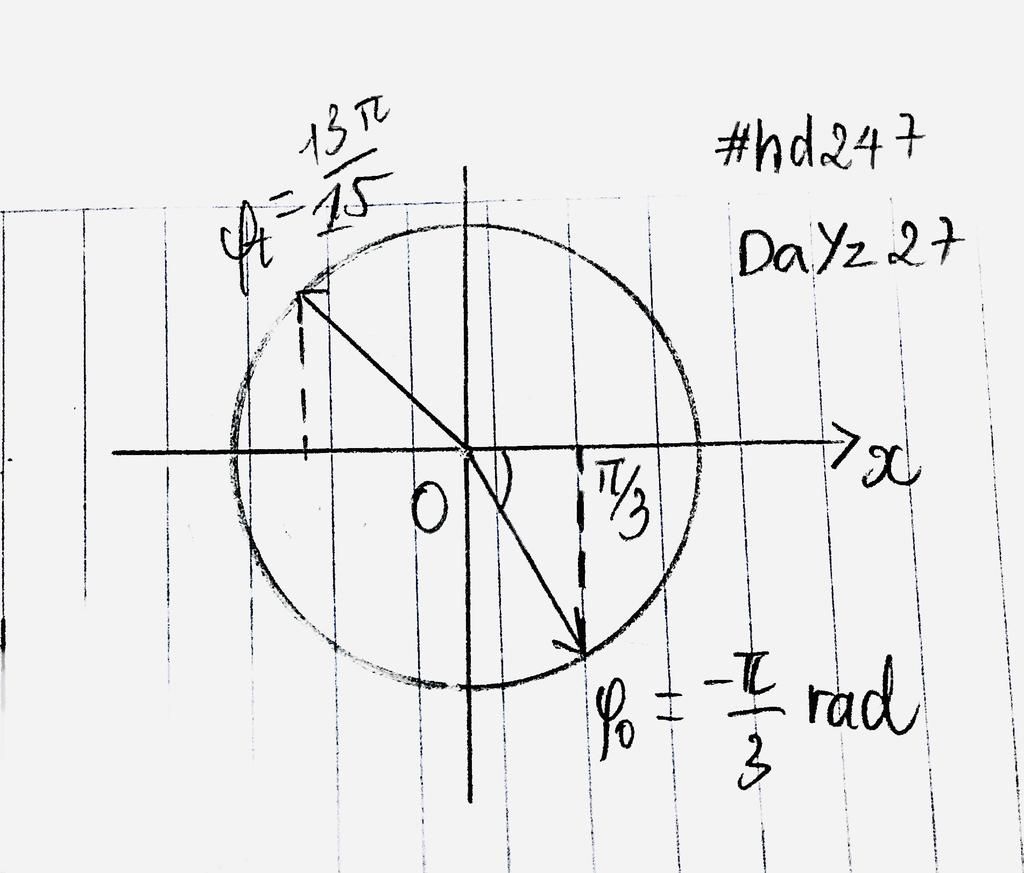 φt = 13π/15
#hd247
DaYz27
x
O
π/3
φ0 = -π/3 rad